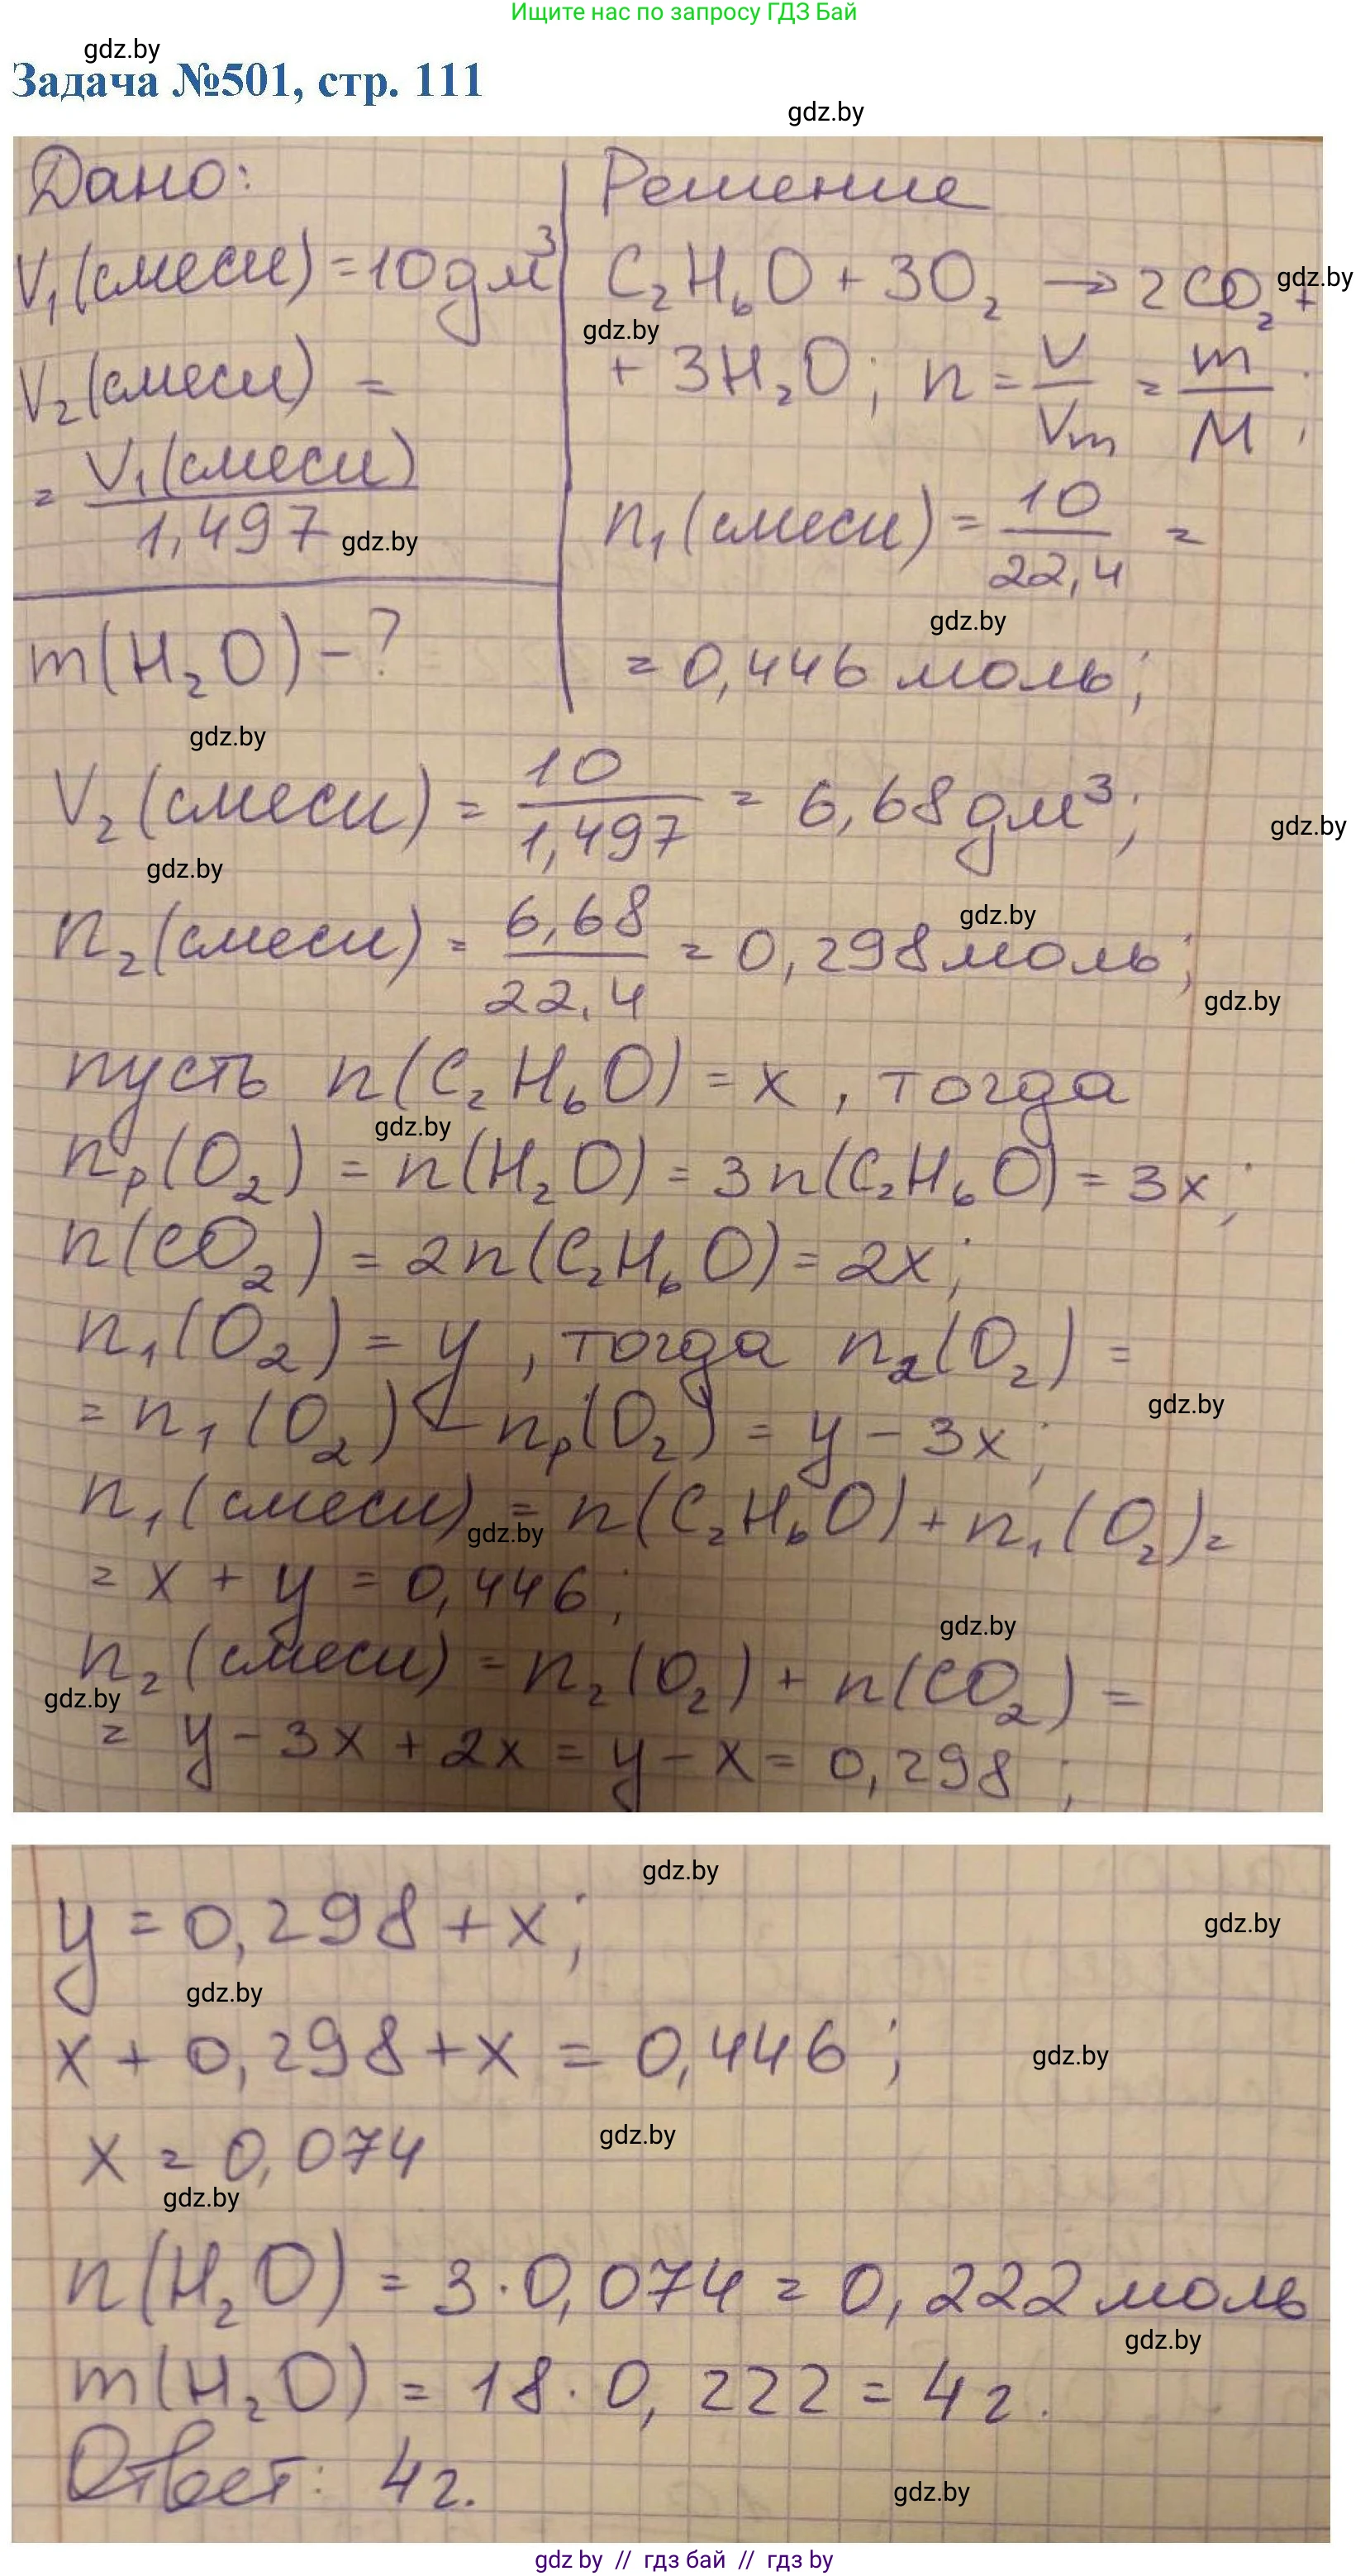 Ищите нас по запросу ГДЗ Бай
gdz.by
Задача №501, стр. 111
gdz.by
Дано:
V₁(смеси) = 10 дм³
V₂(смеси) =
= V₁(смеси) / 1,497
gdz.by
m(H₂O) - ?
Решение
C₂H₆O + 3O₂ → 2CO₂ +
gdz.by
gdz.by
+ 3H₂O; n = V/Vm = m/M;
n₁(смеси) = 10/22,4 =
gdz.by
= 0,446 моль;
gdz.by
V₂(смеси) = 10/1,497 = 6,68 дм³;
gdz.by
gdz.by
n₂(смеси) = 6,68/22,4 = 0,298 моль;
gdz.by
gdz.by
пусть n(C₂H₆O) = x, тогда
gdz.by
nₚ(O₂) = n(H₂O) = 3n(C₂H₆O) = 3x;
n(CO₂) = 2n(C₂H₆O) = 2x;
n₁(O₂) = y, тогда n₂(O₂) =
= n₁(O₂) - nₚ(O₂) = y - 3x;
gdz.by
n₁(смеси) = n(C₂H₆O) + n₁(O₂) =
gdz.by
= x + y = 0,446;
gdz.by
n₂(смеси) = n₂(O₂) + n(CO₂) =
gdz.by
= y - 3x + 2x = y - x = 0,298;
gdz.by
y = 0,298 + x;
gdz.by
gdz.by
x + 0,298 + x = 0,446;
gdz.by
gdz.by
x = 0,074
gdz.by
n(H₂O) = 3·0,074 = 0,222 моль
gdz.by
m(H₂O) = 18·0,222 = 4 г.
Ответ: 4 г.
gdz.by
gdz by // гдз бай // гдз by